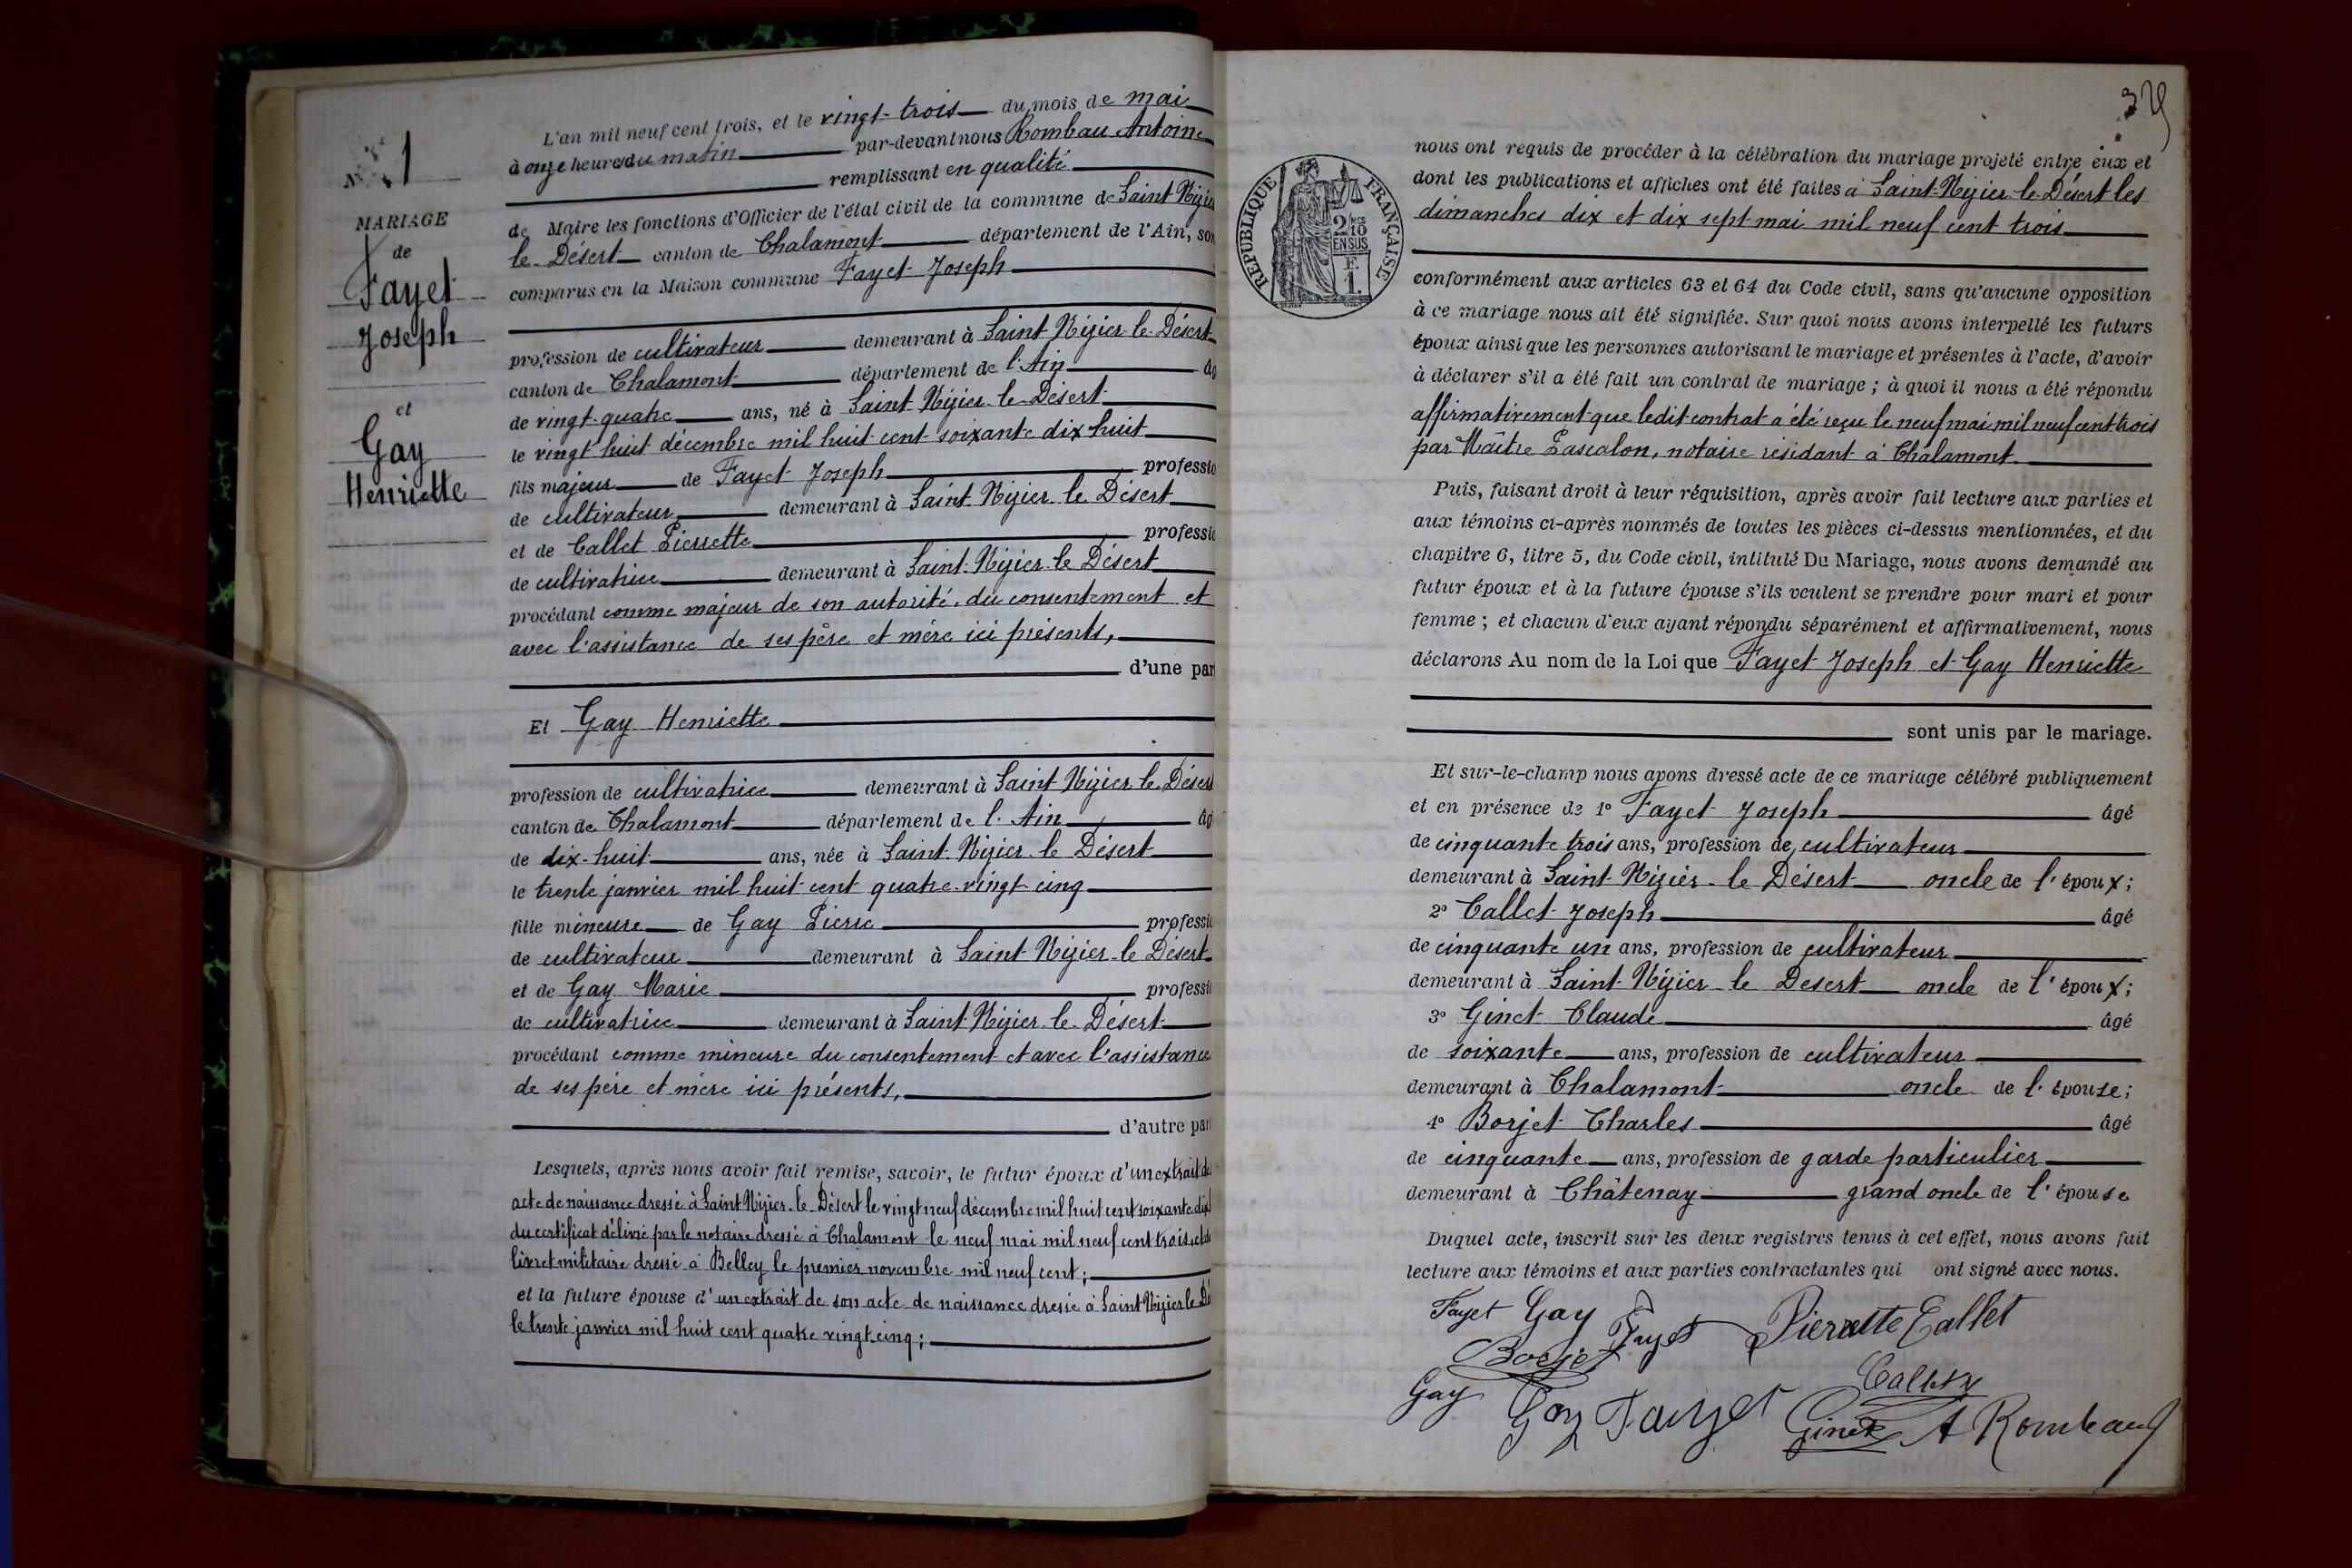 N° 1
MARIAGE
de
Fayet
Joseph
et
Gay
Henriette
L'an mil neuf cent trois, et le vingt-trois du mois de mai
à onze heures du matin par-devant nous Rombau Antoine
remplissant en qualité
de Maire les fonctions d'Officier de l'état civil de la commune de Saint Nizier
le Désert canton de Chalamont département de l'Ain, son
comparus en la Maison commune Fayet Joseph
profession de cultivateur demeurant à Saint Nizier le Désert
canton de Chalamont département de l'Ain âg
de vingt-quatre ans, né à Saint Nizier le Désert
le vingt huit décembre mil huit cent soixante dix huit
fils majeur de Fayet Joseph professio
de cultivateur demeurant à Saint Nizier le Désert
et de Callet Pierrette professio
de cultivatrice demeurant à Saint Nizier le Désert
procédant comme majeur de son autorité, du consentement et
avec l'assistance de ses père et mère ici présents,
d'une par
Et Gay Henriette
profession de cultivatrice demeurant à Saint Nizier le Désert
canton de Chalamont département de l'Ain âg
de dix-huit ans, née à Saint Nizier le Désert
le trente janvier mil huit cent quatre-vingt cinq
fille mineure de Gay Pierre professio
de cultivateur demeurant à Saint Nizier le Désert
et de Gay Marie professio
de cultivatrice demeurant à Saint Nizier le Désert
procédant comme mineure du consentement et avec l'assistance
de ses père et mère ici présents,
d'autre par
Lesquels, après nous avoir fait remise, savoir, le futur époux d'un extrait de
acte de naissance dressé à Saint Nizier le Désert le vingt neuf décembre mil huit cent soixante dix
du certificat délivré par le notaire dressé à Chalamont le neuf mai mil neuf cent trois, et de
livret militaire dressé à Belley le premier novembre mil neuf cent;
et la future épouse d'un extrait de son acte de naissance dressé à Saint Nizier le Dé
le trente janvier mil huit cent quatre vingt cinq;
RÉPUBLIQUE FRANÇAISE
2/10 EN SUS
F.
1.
nous ont requis de procéder à la célébration du mariage projeté entre eux et
dont les publications et affiches ont été faites à Saint-Nizier-le-Désert les
dimanches dix et dix sept mai mil neuf cent trois
conformément aux articles 63 et 64 du Code civil, sans qu'aucune opposition
à ce mariage nous ait été signifiée. Sur quoi nous avons interpellé les futurs
époux ainsi que les personnes autorisant le mariage et présentes à l'acte, d'avoir
à déclarer s'il a été fait un contrat de mariage ; à quoi il nous a été répondu
affirmativement que ledit contrat a été reçu le neuf mai mil neuf cent trois
par Maître Lascalon, notaire résidant à Chalamont.
Puis, faisant droit à leur réquisition, après avoir fait lecture aux parties et
aux témoins ci-après nommés de toutes les pièces ci-dessus mentionnées, et du
chapitre 6, titre 5, du Code civil, intitulé Du Mariage, nous avons demandé au
futur époux et à la future épouse s'ils veulent se prendre pour mari et pour
femme ; et chacun d'eux ayant répondu séparément et affirmativement, nous
déclarons Au nom de la Loi que Fayet Joseph et Gay Henriette
sont unis par le mariage.
Et sur-le-champ nous avons dressé acte de ce mariage célébré publiquement
et en présence de 1° Fayet Joseph âgé
de cinquante trois ans, profession de cultivateur
demeurant à Saint Nizier le Désert oncle de l'époux;
2° Callet Joseph âgé
de cinquante un ans, profession de cultivateur
demeurant à Saint Nizier le Desert oncle de l'époux;
3° Ginet Claude âgé
de soixante ans, profession de cultivateur
demeurant à Chalamont oncle de l'épouse;
4° Borjet Charles âgé
de cinquante ans, profession de garde particulier
demeurant à Châtenay grand oncle de l'épouse
Duquel acte, inscrit sur les deux registres tenus à cet effet, nous avons fait
lecture aux témoins et aux parties contractantes qui ont signé avec nous.
Fayet Gay Fayet Pierrette Callet
Borjet
Gay Gay Fayet Callet
Ginet A Rombau